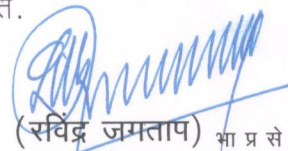 त.
(रविंद्र जगताप) भा प्र से